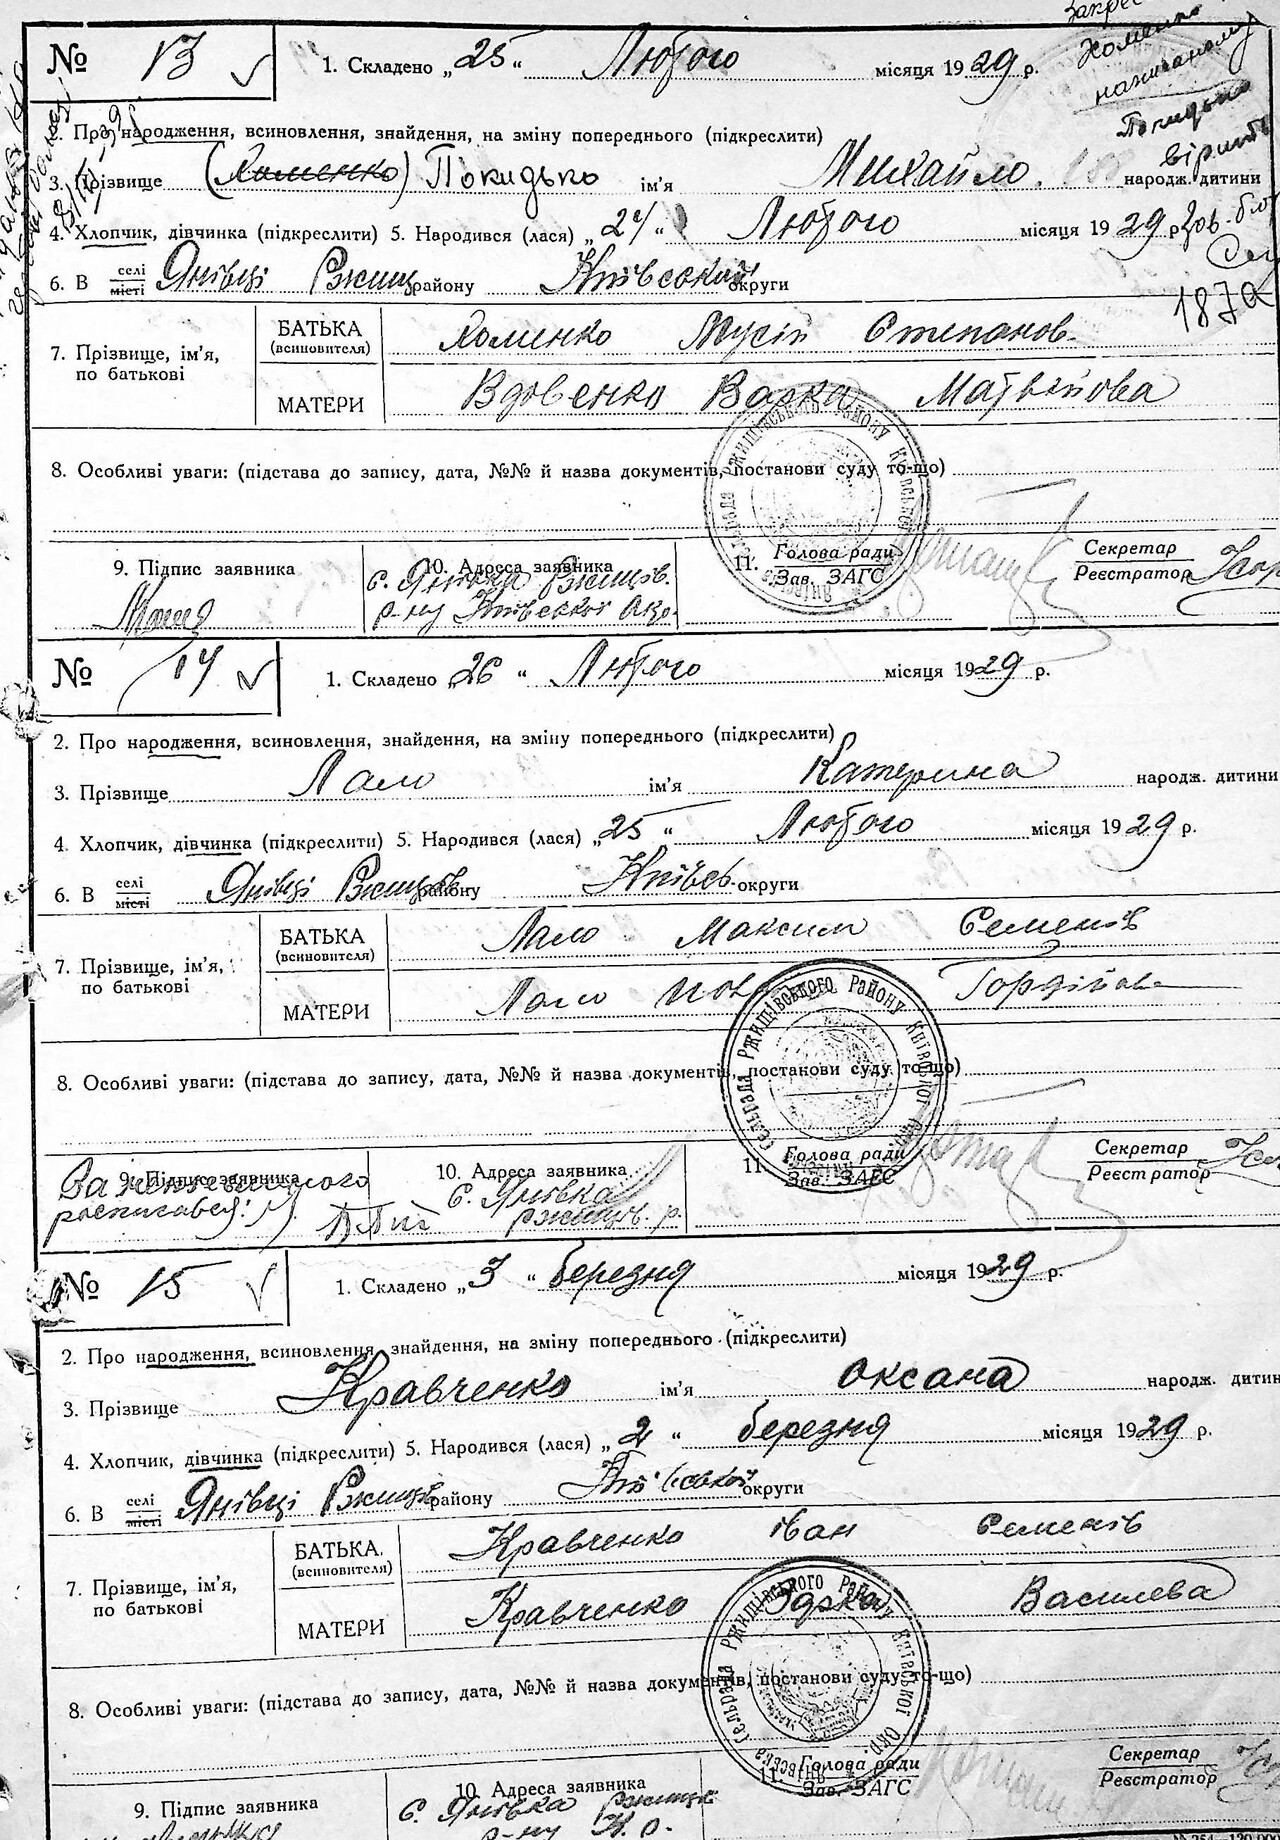 закрес
Хоменко
написаному
Покидько
вірить
Зав. бюр
187а
№ 13 1. Складено „25“ Лютого місяця 1929 р.
2. Про народження, всиновлення, знайдення, на зміну попереднього (підкреслити)
3. Прізвище (Хоменко) Покидько ім'я Михайло народж. дитини
4. Хлопчик, дівчинка (підкреслити) 5. Народився (лася) „24“ Лютого місяця 1929 р.
6. В селі місті Янівці Ржищ району Київської округи
7. Прізвище, ім'я, по батькові
БАТЬКА (всиновителя) Хоменко Мусій Степанов.
МАТЕРИ Вдовенко Варка Матвійова
8. Особливі уваги: (підстава до запису, дата, №№ й назва документів, постанови суду то-що)
9. Підпис заявника 10. Адреса заявника 11. Голова ради Зав. ЗАГС Секретар Реєстратор
с. Янівка Ржищов.
р-ну Київської Окр.
№ 14 1. Складено „26“ Лютого місяця 1929 р.
2. Про народження, всиновлення, знайдення, на зміну попереднього (підкреслити)
3. Прізвище Лало ім'я Катерина народж. дитини
4. Хлопчик, дівчинка (підкреслити) 5. Народився (лася) „25“ Лютого місяця 1929 р.
6. В селі місті Янівці Ржищов. району Київсь. округи
7. Прізвище, ім'я, по батькові
БАТЬКА (всиновителя) Лало Максим Семенів
МАТЕРИ Лало Гордійова
8. Особливі уваги: (підстава до запису, дата, №№ й назва документів, постанови суду то-що)
9. Підпис заявника 10. Адреса заявника 11. Голова ради Зав. ЗАГС Секретар Реєстратор
За неписьменного
росписався:
с. Янівка
Ржищов. р.
№ 15 1. Складено „3“ березня місяця 1929 р.
2. Про народження, всиновлення, знайдення, на зміну попереднього (підкреслити)
3. Прізвище Кравченко ім'я Оксана народж. дитин
4. Хлопчик, дівчинка (підкреслити) 5. Народився (лася) „2“ березня місяця 1929 р.
6. В селі місті Янівці Ржищів району Київської округи
7. Прізвище, ім'я, по батькові
БАТЬКА (всиновителя) Кравченко Іван Семенів
МАТЕРИ Кравченко Одарка Василева
8. Особливі уваги: (підстава до запису, дата, №№ й назва документів, постанови суду то-що)
9. Підпис заявника 10. Адреса заявника 11. Голова ради Зав. ЗАГС Секретар Реєстратор
с. Янівка Ржищ.
р-ну К. о.